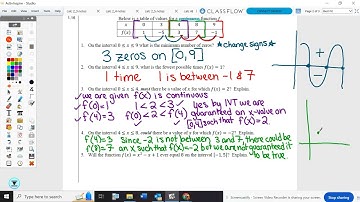 CLASSFLOW
Below is a table of values for a continuous function f
x 0 3 4 8 9
f(x) 1 -5 3 7 -1
On the interval 0 ≤ x ≤ 9 what is the minimum number of zeros? *change signs*
3 zeros on [0,9]
On the interval 0 ≤ x ≤ 9, what is the fewest possible times f(x) = 1?
1 time 1 is between -1 & 7
3. On the interval 0 ≤ x ≤ 4, must there be a value of x for which f(x) = 2? Explain.
✓we are given f(x) is continuous
✓f(0)=1 1<2<3 ✓yes by IVT we are
✓f(4)=3 f(0)<2<f(4) guaranteed an x-value on
[0,4] such that f(x)=2
4. On the interval 4 ≤ x ≤ 8, could there be a value of x for which f(x) = -2? Explain.
f(4)=3 Since -2 is not between 3 and 7, there could be
f(8)=7 an x such that f(x)=-2 but we are not guaranteed it
5. Will the function f(x) = x² - x + 1 ever equal 8 on the interval [-1,5]? Explain. to be true.